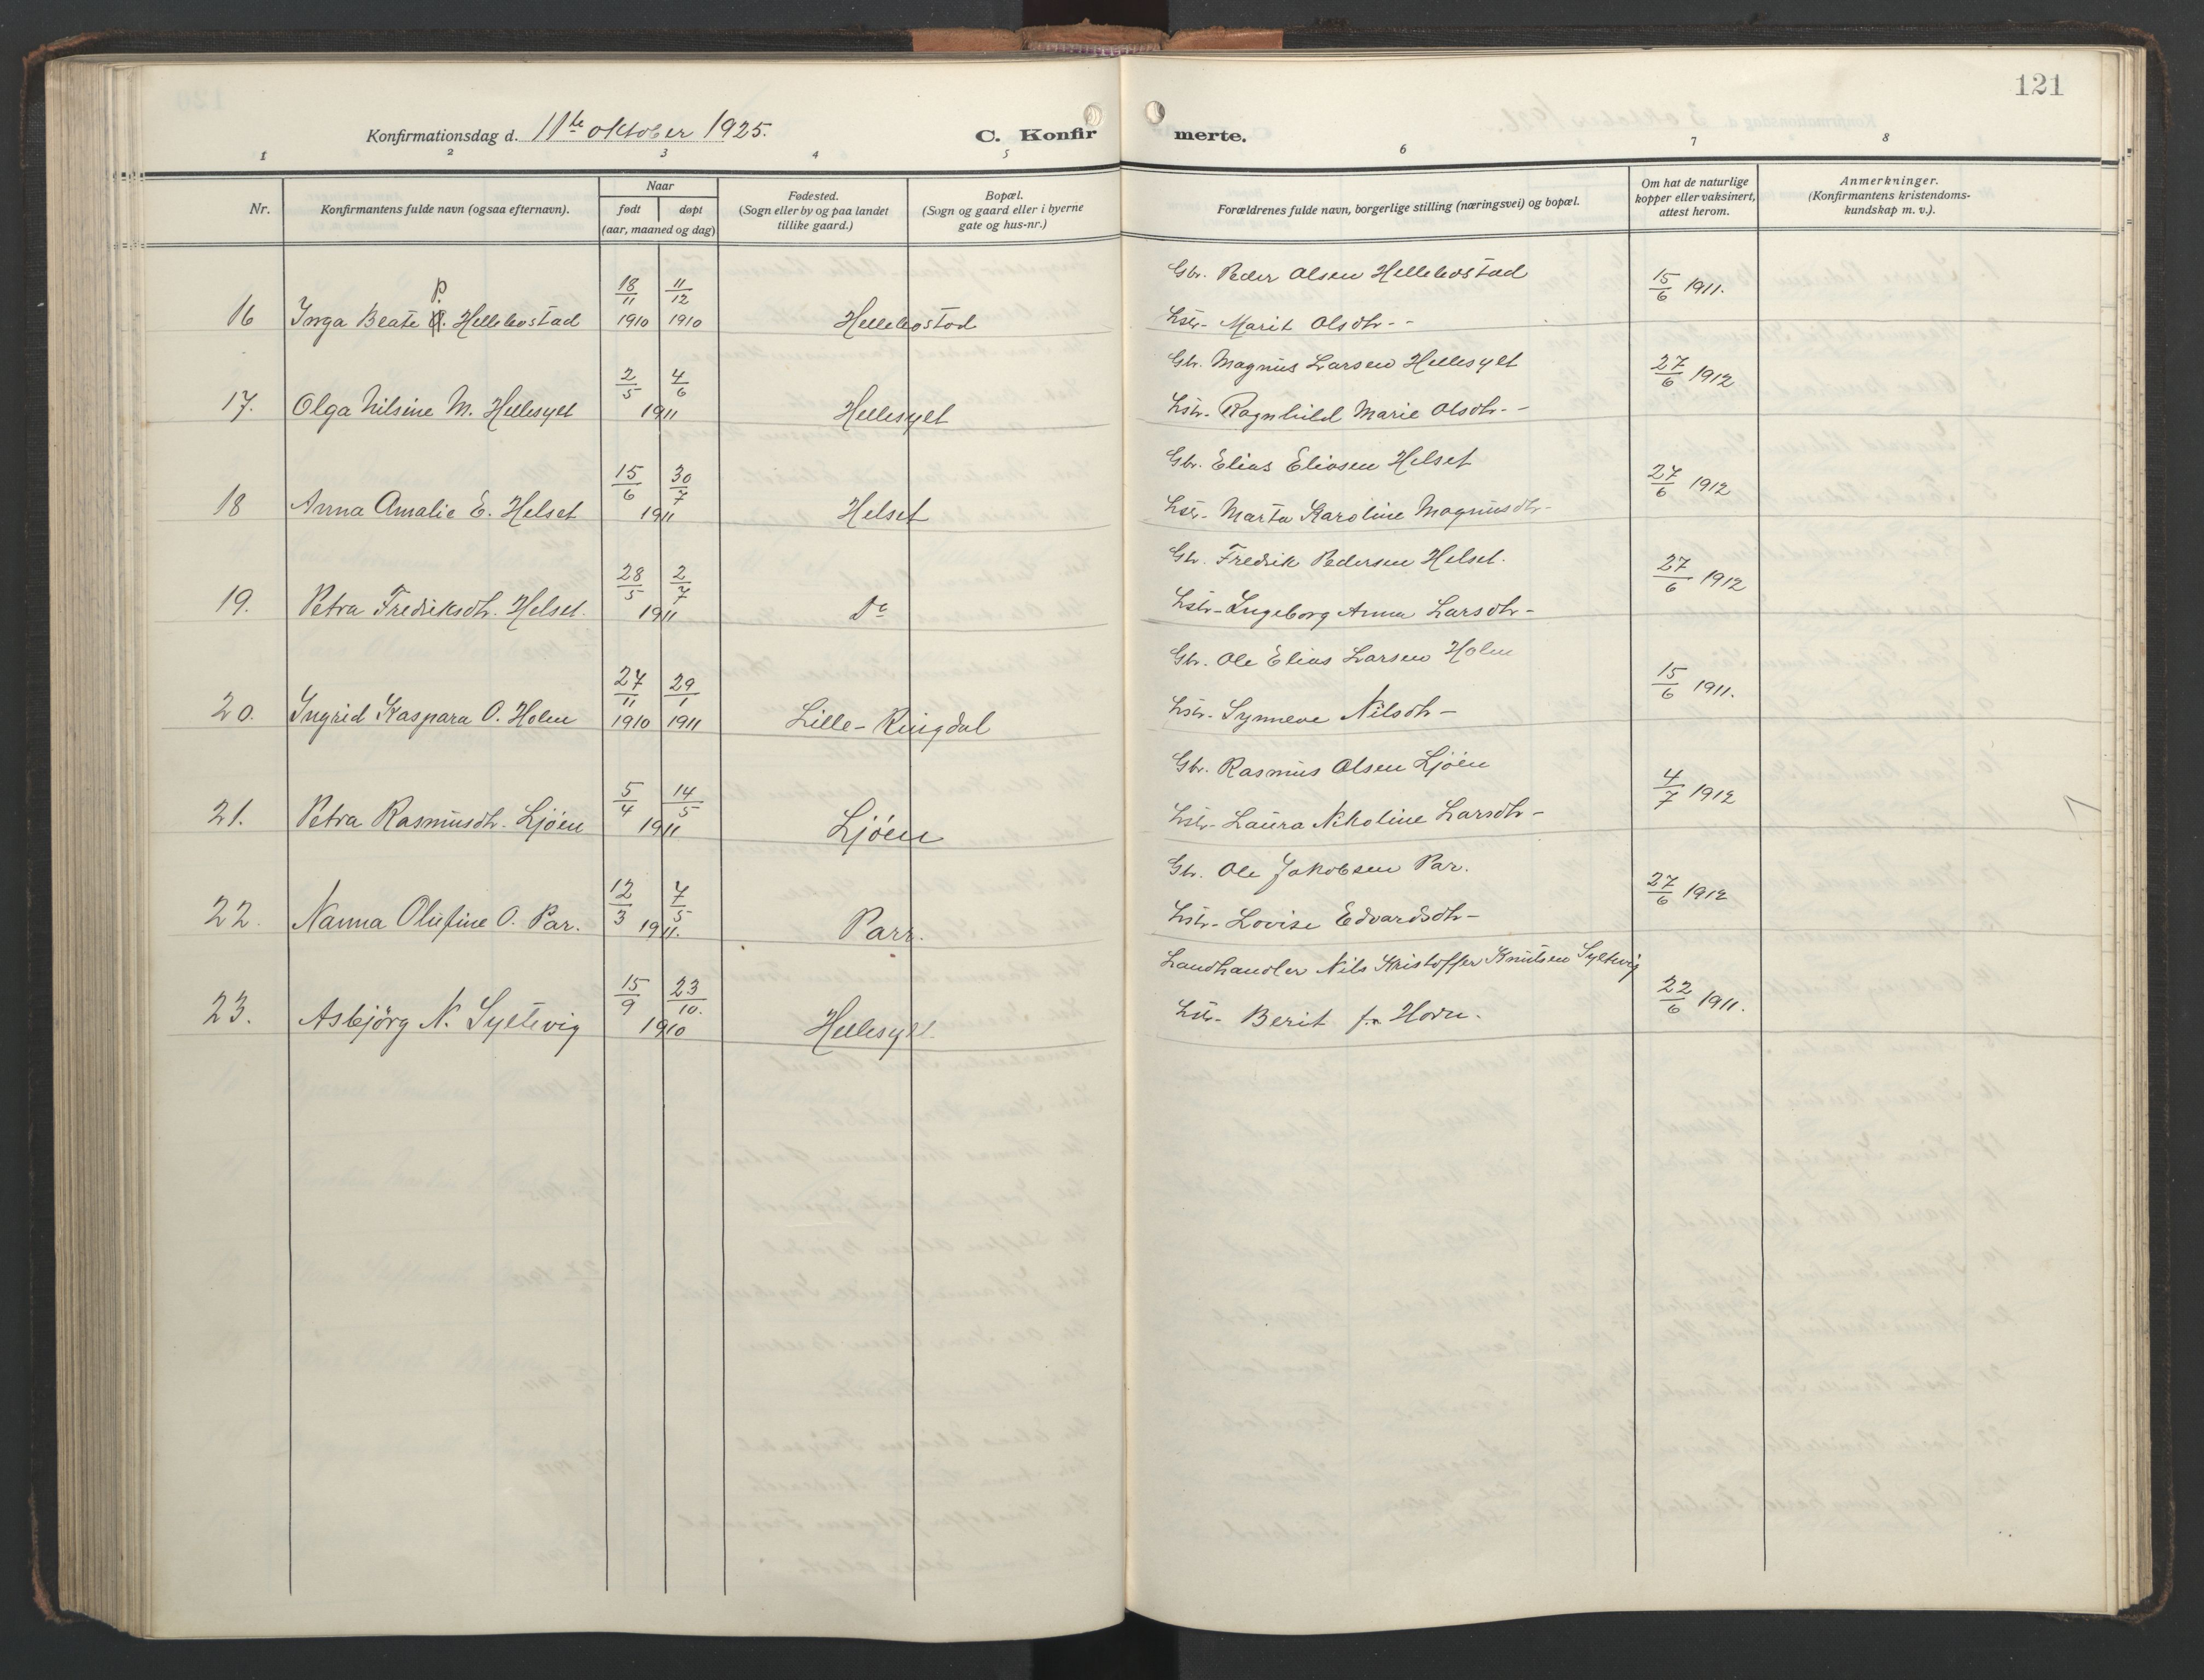 121
Konfirmationsdag d. 11te oktober 1925.
C. Konfirmerte.
1 2 3 4 5 6 7 8
Nr.
Konfirmantens fulde navn (ogsaa efternavn).
Naar
født døpt
(aar, maaned og dag)
Fødested.
(Sogn eller by og paa landet
tillike gaard.)
Bopæl.
(Sogn og gaard eller i byerne
gate og hus-nr.)
Forældrenes fulde navn, borgerlige stilling (næringsvei) og bopæl.
Om hat de naturlige
kopper eller vaksinert,
attest herom.
Anmerkninger.
(Konfirmantens kristendoms-
kundskap m. v.).
P.
18/11 11/12 Gbr. Peder Olsen Hellebostad 15/6 1911.
16 Inga Beate O. Hellebostad 1910 1910 Hellebostad Hstr. Marit Olsdtr. - -
2/5 4/6 Gbr. Magnus Larsen Hellesylt 27/6 1912
17. Olga Nilsine M. Hellesylt 1911 Hellesylt Hstr. Ragnhild Marie Olsdtr. - -
15/6 30/7 Gbr. Elias Eliasen Helset 27/6 1912
18 Anna Amalie E. Helset 1911 Helset Hstr. Marta Karoline Magnusdtr. -
28/5 2/7 Gbr. Fredrik Pedersen Helset. 27/6 1912
19. Petra Fredriksdtr. Helset. 1911 Do Hstr. Ingeborg Anna Larsdtr -
27/11 29/1 Gbr. Ole Elias Larsen Holm 15/6 1911.
20. Ingrid Kaspara O. Holm 1910 1911 Lille-Ringdal Hstr. Synneve Nilsdtr -
5/4 14/5 Gbr. Rasmus Olsen Ljöen 4/7 1912
21. Petra Rasmusdtr. Ljöen 1911 Ljöen Hstr. Laura Nikoline Larsdtr -
12/3 7/5 Gbr. Ole Jakobsen Par. 27/6 1912
22. Nanna Olufine O. Par. 1911. Parr. Hstr. Lovise Edvardsdtr -
15/9 23/10. Landhandler Nils Kristoffer Knutsen Syltevig 22/6 1911.
23. Asbjörg N. Syltevig 1910 Hellesylt. Hstr. Berit f. Horn.